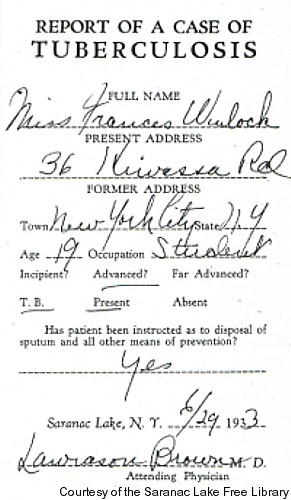 REPORT OF A CASE OF
TUBERCULOSIS
FULL NAME
Miss Frances Winlock
PRESENT ADDRESS
36 Kiwassa Rd
FORMER ADDRESS
Town New York City State N Y
Age 19 Occupation Student
Incipient? Advanced? Far Advanced?
T. B. Present Absent
Has patient been instructed as to disposal of
sputum and all other means of prevention?
Yes
Saranac Lake, N. Y. 6/29 1933
Lawrason Brown M. D.
Attending Physician
Courtesy of the Saranac Lake Free Library